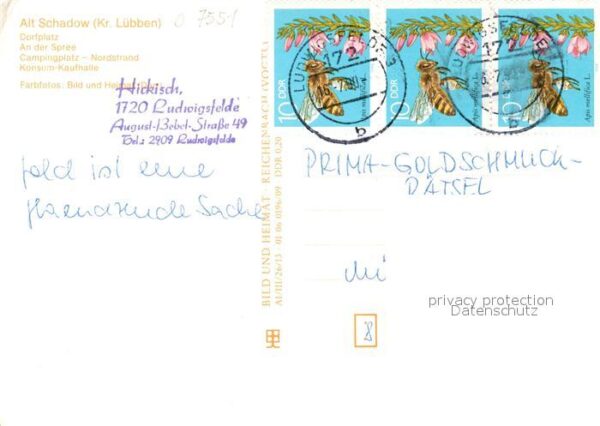 Alt Schadow (Kr. Lübben)
Dorfplatz
An der Spree
Campingplatz – Nordstrand
Konsum-Kaufhalle
Farbfotos: Bild und Heimat
0 7551
Hickisch,
1720 Ludwigsfelde
August-Bebel-Straße 49
Tel.: 2909 Ludwigsfelde
Gold ist eine
glaenzende Sache
BILD UND HEIMAT · REICHENBACH (VOGTL)
A1/III/26/13 01 06 0196/09 DDR 0,20
10 DDR
Apis mellifica L.
10 DDR
Apis mellifica L.
10 DDR
Apis mellifica L.
LUDWIGSFELDE
172
b
LUDWIGSFELDE
172
b
PRIMA-GOLDSCHMUCK-
RÄTSEL
privacy protection
Datenschutz